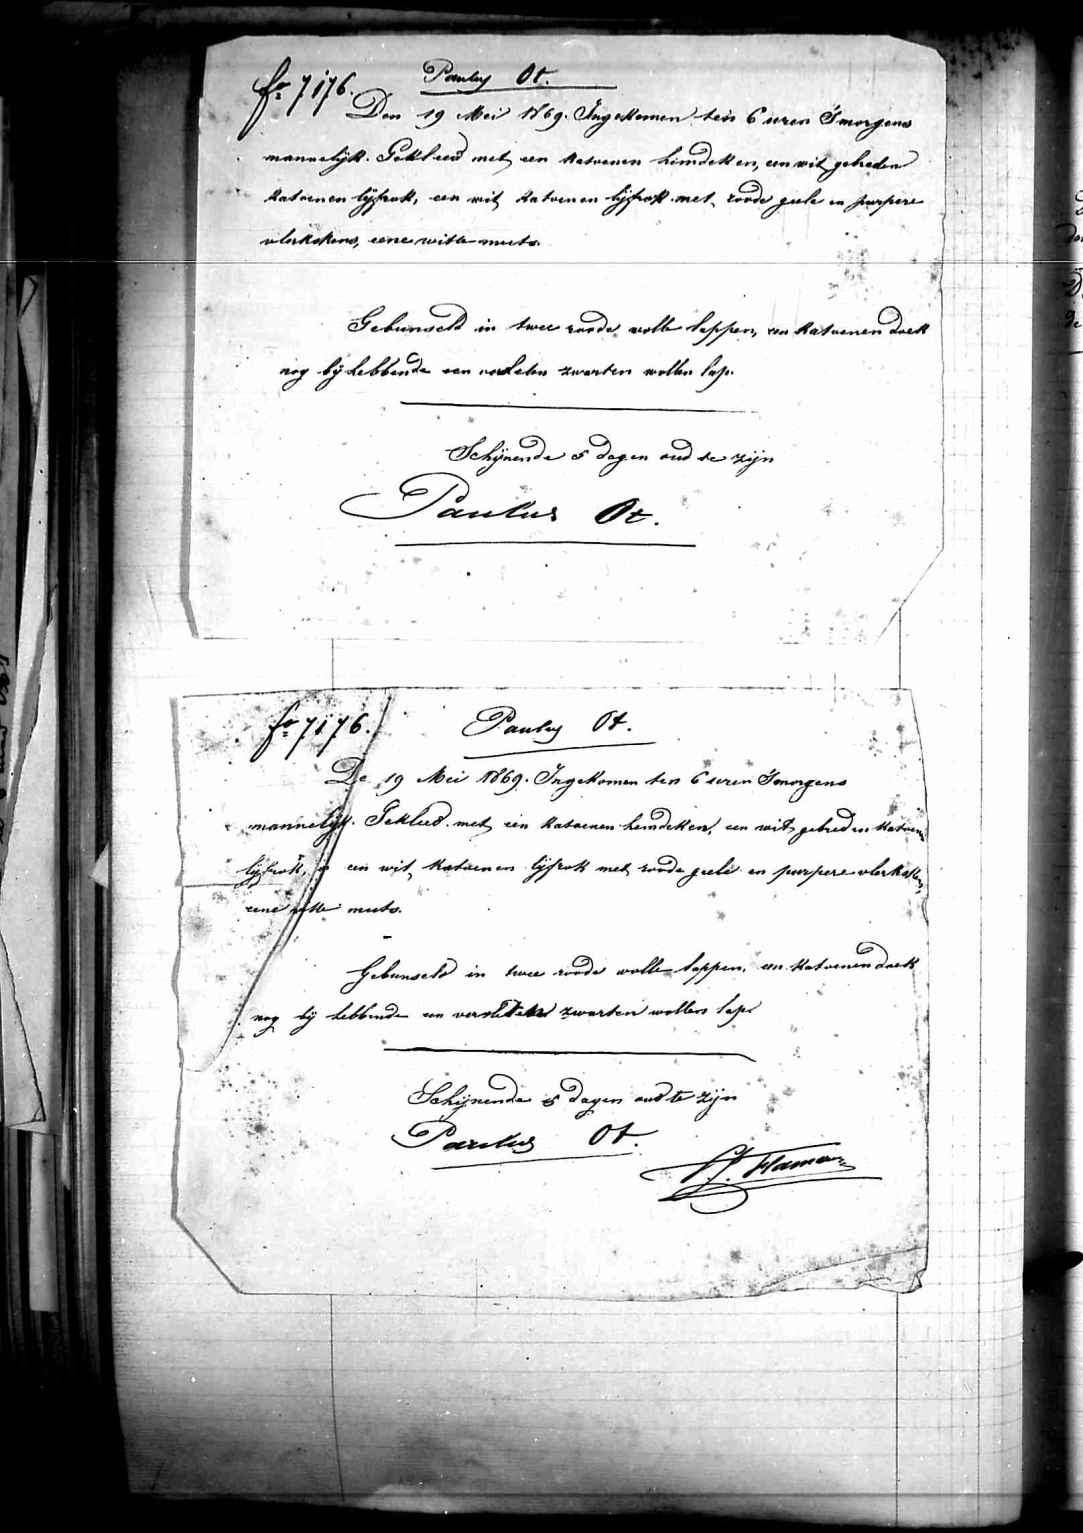 fo 7176. Paulus Ot.
Den 19 Mei 1869. Ingekomen ten 6 uren Smorgens
mannelijk. Gekleed met een katoenen hemdeken, een wit gebreden
katoenen lijfrok, een wit katoenen lijfrok met roode geele en purpere
vlerkskens, eene witte muts.
Gebunseld in twee roode wolle lappen, een katoenen doek
nog bij hebbende een versleten zwarten wollen lap.
Schijnende 5 dagen oud te zijn
Paulus Ot.
fo 7176. Paulus Ot.
De 19 Mei 1869. Ingekomen ten 6 uren Smorgens
mannelijk. Gekleed met een katoenen hemdeken, een wit gebreden katoenen
lijfrok, een wit katoenen lijfrok met roode geele en purpere vlerkskens,
eene witte muts.
Gebunseld in twee roode wolle lappen, een katoenen doek
nog bij hebbende een versleten zwarten wollen lap
Schijnende 5 dagen oud te zijn
Paulus Ot.